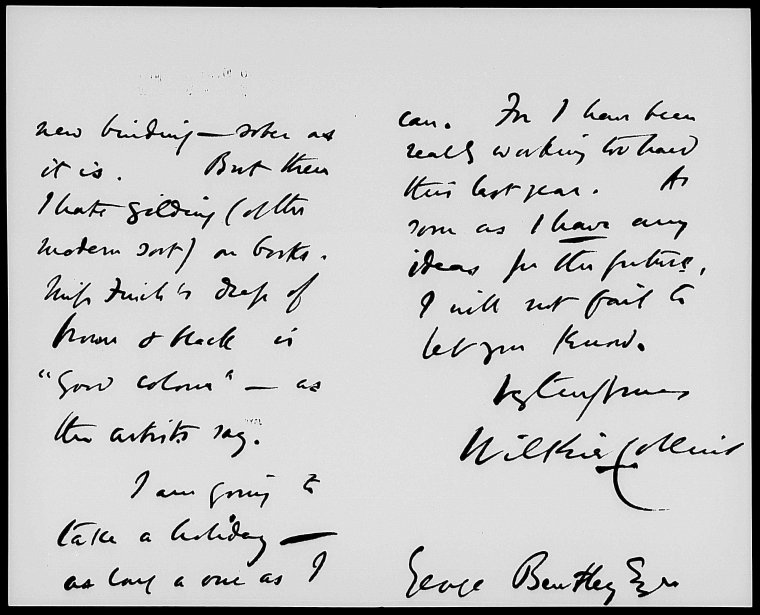 new binding — sober as
it is. But then
I hate gilding (of the
modern sort) on books.
Miss Finch's dress of
brown & black is
"good colour" — as
the artists say.
I am going to
take a holiday —
as long a one as I
can. For I have been
really working too hard
this last year. As
soon as I have any
ideas for the future,
I will not fail to
let you know.
Vy truly yours
Wilkie Collins
George Bentley Esqre